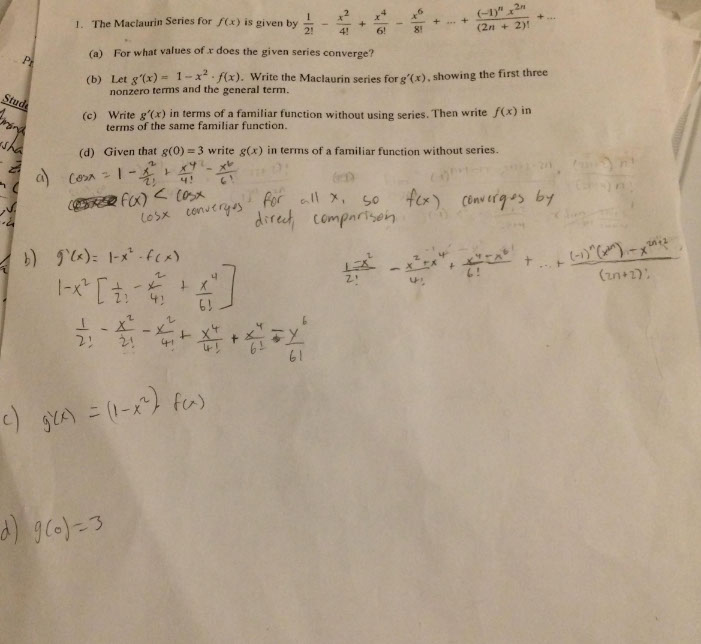 1. The Maclaurin Series for f(x) is given by 1/2! - x²/4! + x⁴/6! - x⁶/8! + ... + (-1)ⁿ x²ⁿ/(2n + 2)! + ...
(a) For what values of x does the given series converge?
(b) Let g'(x) = 1-x² · f(x). Write the Maclaurin series for g'(x), showing the first three
nonzero terms and the general term.
(c) Write g'(x) in terms of a familiar function without using series. Then write f(x) in
terms of the same familiar function.
(d) Given that g(0) = 3 write g(x) in terms of a familiar function without series.
Stude
a) cosx = 1 - x²/2! + x⁴/4! - x⁶/6!
f(x) < cosx
cosx converges for all x, so f(x) converges by
direct comparison
b) g'(x) = 1-x² · f(x)
1-x² [1/2! - x²/4! + x⁴/6!]
1/2! - x²/2! - x²/4! + x⁴/4! + x⁴/6! - x⁶/6!
1-x²/2! - x²+x⁴/4! + x⁴-x⁶/6! + ... + (-1)ⁿ(x²ⁿ)-x²ⁿ⁺²/(2n+2)!
c) g'(x) = (1-x²) f(x)
d) g(0)=3